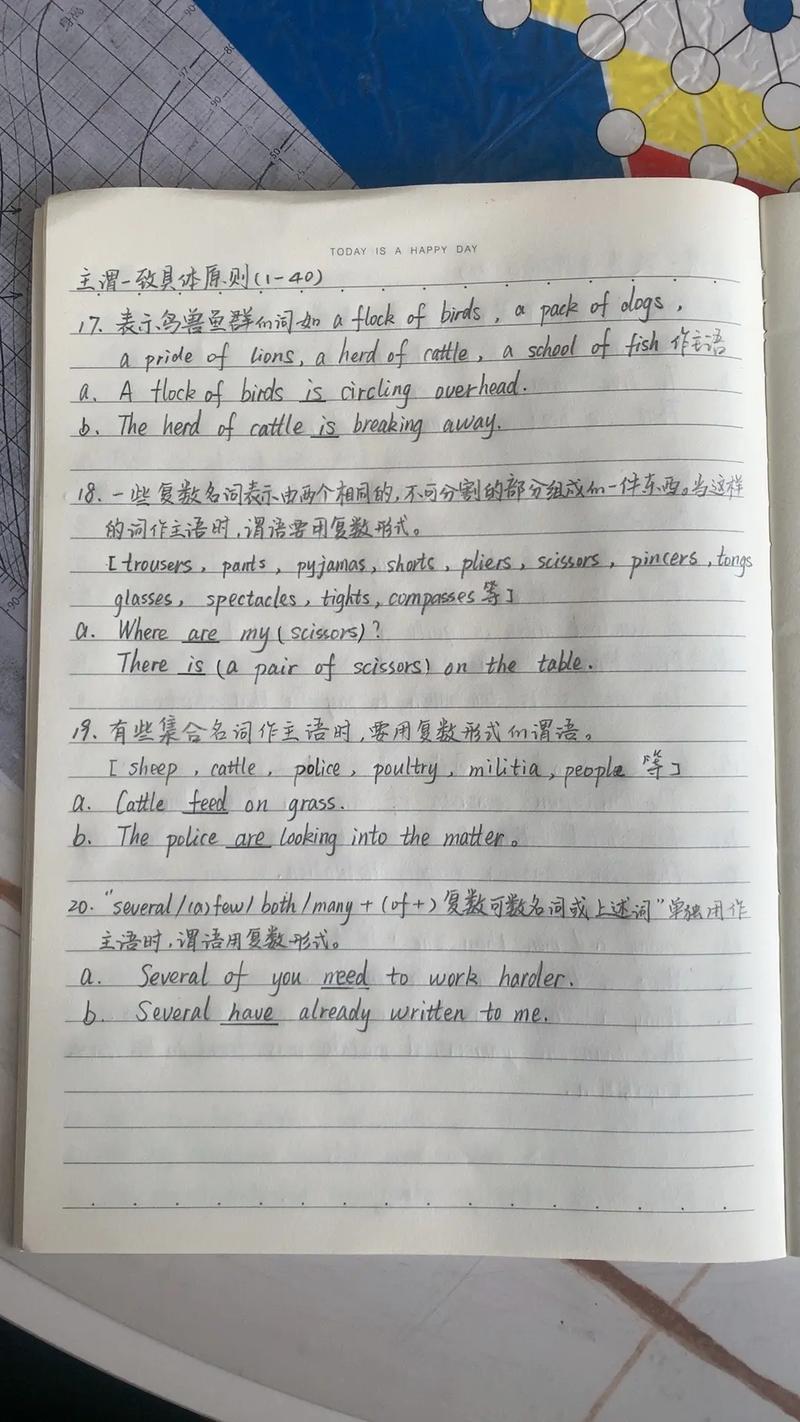 TODAY IS A HAPPY DAY
主谓一致具体原则(1-40)
17. 表示鸟兽鱼群的词如 a flock of birds, a pack of dogs,
a pride of lions, a herd of cattle, a school of fish 作主语
a. A flock of birds is circling overhead.
b. The herd of cattle is breaking away.
18. 一些复数名词表示由两个相同的,不可分割的部分组成的一件东西。当这样
的词作主语时,谓语要用复数形式。
[trousers, pants, pyjamas, shorts, pliers, scissors, pincers, tongs
glasses, spectacles, tights, compasses 等]
a. Where are my (scissors)?
There is (a pair of scissors) on the table.
19. 有些集合名词作主语时,要用复数形式的谓语。
[sheep, cattle, police, poultry, militia, people 等]
a. Cattle feed on grass.
b. The police are looking into the matter。
20. "several/(a) few/both/many+(of+)复数可数名词或上述词"单独用作
主语时,谓语用复数形式。
a. Several of you need to work harder.
b. Several have already written to me.